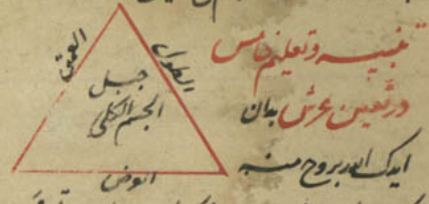 تنبیه و تعلیم خامس
در تعیین عرش بدان
ایدک الله بروح منه
الطول
العمق
جبل
الجسم الکلی
العرض